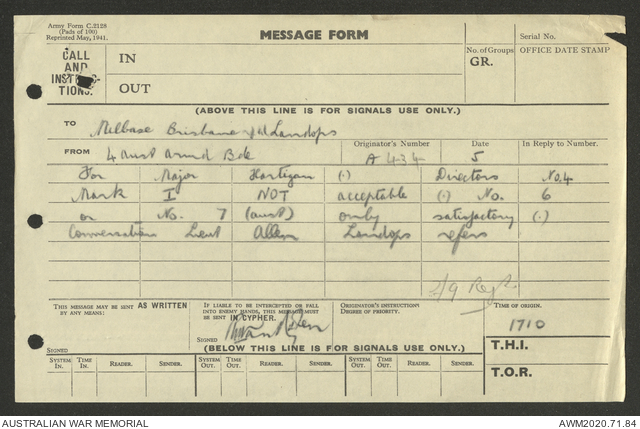 Army Form C.2128
(Pads of 100)
Reprinted May, 1941.
MESSAGE FORM
Serial No.
CALL AND INSTRUC-TIONS.
IN
No. of Groups GR.
OFFICE DATE STAMP
OUT
(ABOVE THIS LINE IS FOR SIGNALS USE ONLY.)
TO Milbase Brisbane Landops
FROM 4 Aust Armd Bde Originator's Number A 434 Date 5 In Reply to Number.
For Major Hartigan (.) Directors No.4
Mark I NOT acceptable (.) No. 6
or No. 7 (Aust) only satisfactory (.)
Conversation Lieut Allen Landops refers
2/9 Regt
THIS MESSAGE MAY BE SENT AS WRITTEN BY ANY MEANS:
IF LIABLE TO BE INTERCEPTED OR FALL INTO ENEMY HANDS, THIS MESSAGE MUST BE SENT IN CYPHER.
ORIGINATOR'S INSTRUCTIONS DEGREE OF PRIORITY.
TIME OF ORIGIN.
1710
SIGNED
SIGNED
(BELOW THIS LINE IS FOR SIGNALS USE ONLY.)
T.H.I.
SYSTEM IN. TIME IN. READER. SENDER. SYSTEM OUT. TIME OUT. READER. SENDER. SYSTEM OUT. TIME OUT. READER. SENDER.
T.O.R.
AUSTRALIAN WAR MEMORIAL
AWM2020.71.84